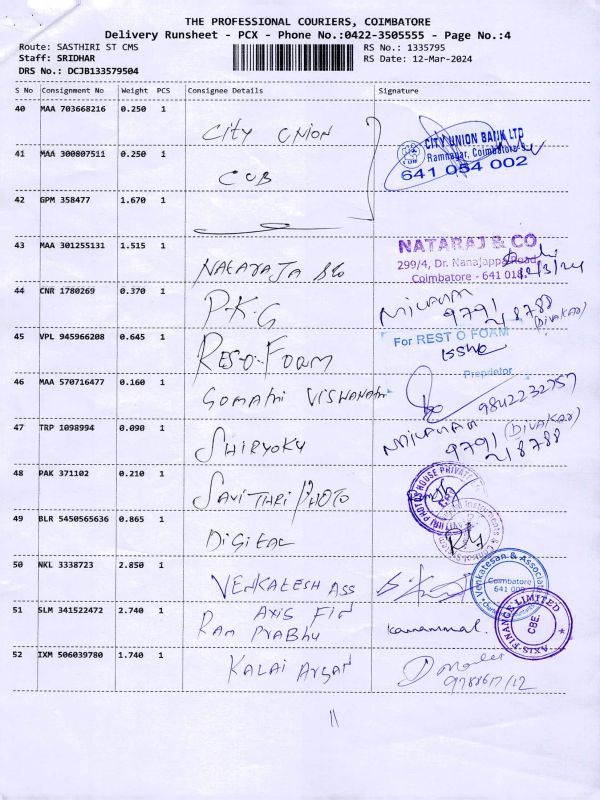 THE PROFESSIONAL COURIERS, COIMBATORE
Delivery Runsheet - PCX - Phone No.:0422-3505555 - Page No.:4
Route: SASTHIRI ST CMS RS No.: 1335795
Staff: SRIDHAR RS Date: 12-Mar-2024
DRS No.: DCJB133579504
S No Consignment No Weight PCS Consignee Details Signature
40 MAA 703668216 0.250 1
City Union
CITY UNION BANK LTD
Ramnagar, Coimbatore-9
641 054 002
41 MAA 300807511 0.250 1
CUB
42 GPM 358477 1.670 1
43 MAA 301255131 1.515 1
NATARAJA &Co
NATARAJ & CO
299/4, Dr. Nanajappa Road
Coimbatore - 641 018
12/3/24
44 CNR 1780269 0.370 1
P.K.G
9791
218788
(DIVAKAR)
45 VPL 945966208 0.645 1
RES-O-FOAM
For REST O FOAM
Proprietor
46 MAA 570716477 0.160 1
GOMATHI VISWANATH
9842232757
47 TRP 1098994 0.090 1
SHIRYOKU
9791
218788
(DIVAKAR)
48 PAK 371102 0.210 1
SAVITHRI PHOTO
49 BLR 5450565636 0.865 1
DIGITAL
50 NKL 3338723 2.850 1
VENKATESH ASS
Venkatesan & Associates
Coimbatore
641 009
51 SLM 341522472 2.740 1
AXIS FIN
RAM PRABHU
AXIS FINANCE LIMITED
CBE.
52 IXM 506039780 1.740 1
KALAI ARSAN
11